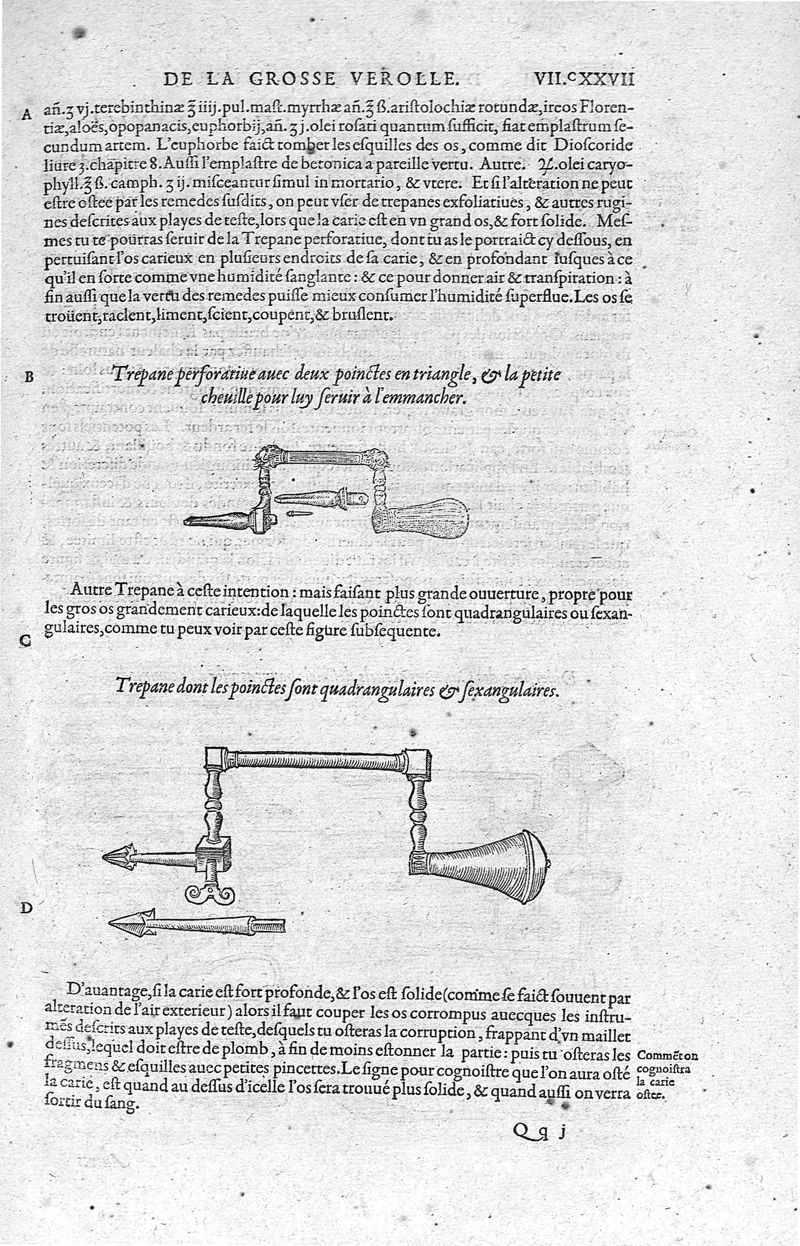 DE LA GROSSE VEROLLE. VII.CXXVII
A
añ.ʒ vj.terebinthinæ ℥ iiij.pul.maſt.myrrhæ añ.℥ ß.ariſtolochiæ rotundæ,ireos Floren-
tiæ,aloës,opopanacis,euphorbij,añ.ʒ j.olei roſati quantum ſufficit, fiat emplaſtrum ſe-
cundum artem. L'euphorbe faict tomber les eſquilles des os, comme dit Dioſcoride
liure 3.chapitre 8.Auſſi l'emplaſtre de betonica a pareille vertu. Autre. ♃.olei caryo-
phyll.℥ ß. camph. ʒ ij. miſceantur ſimul in mortario, & vtere. Et ſi l'alteration ne peut
eſtre oſtee par les remedes ſuſdits, on peut vſer de trepanes exfoliatiues, & autres rugi-
nes deſcrites aux playes de teſte,lors que la carie eſt en vn grand os,& fort ſolide. Meſ-
mes tu te pourras ſeruir de la Trepane perforatiue, dont tu as le portraict cy deſſous, en
pertuiſant l'os carieux en pluſieurs endroits de ſa carie, & en profondant iuſques à ce
qu'il en ſorte comme vne humidité ſanglante : & ce pour donner air & tranſpiration : à
fin auſſi que la vertu des remedes puiſſe mieux conſumer l'humidité ſuperflue.Les os ſe
troüent,raclent,liment,ſcient,coupent,& bruſlent.
B
Trepane perforatiue auec deux poinctes en triangle, & la petite
cheuille pour luy ſeruir à l'emmancher.
Autre Trepane à ceſte intention : mais faiſant plus grande ouuerture, propre pour
les gros os grandement carieux:de laquelle les poinctes ſont quadrangulaires ou ſexan-
gulaires,comme tu peux voir par ceſte figure ſubſequente.
C
Trepane dont les poinctes ſont quadrangulaires & ſexangulaires.
D
D'auantage,ſi la carie eſt fort profonde,& l'os eſt ſolide(comme ſe faict ſouuent par
alteration de l'air exterieur) alors il faut couper les os corrompus auecques les inſtru-
mēs deſcrits aux playes de teſte,deſquels tu oſteras la corruption, frappant d'vn maillet
deſſus,lequel doit eſtre de plomb, à fin de moins eſtonner la partie : puis tu oſteras les
fragmens & eſquilles auec petites pincettes.Le ſigne pour cognoiſtre que l'on aura oſté
la carie, eſt quand au deſſus d'icelle l'os ſera trouué plus ſolide, & quand auſſi on verra
ſortir du ſang.
Commēt on
cognoiſtra
la carie
oſtee.
Qq j